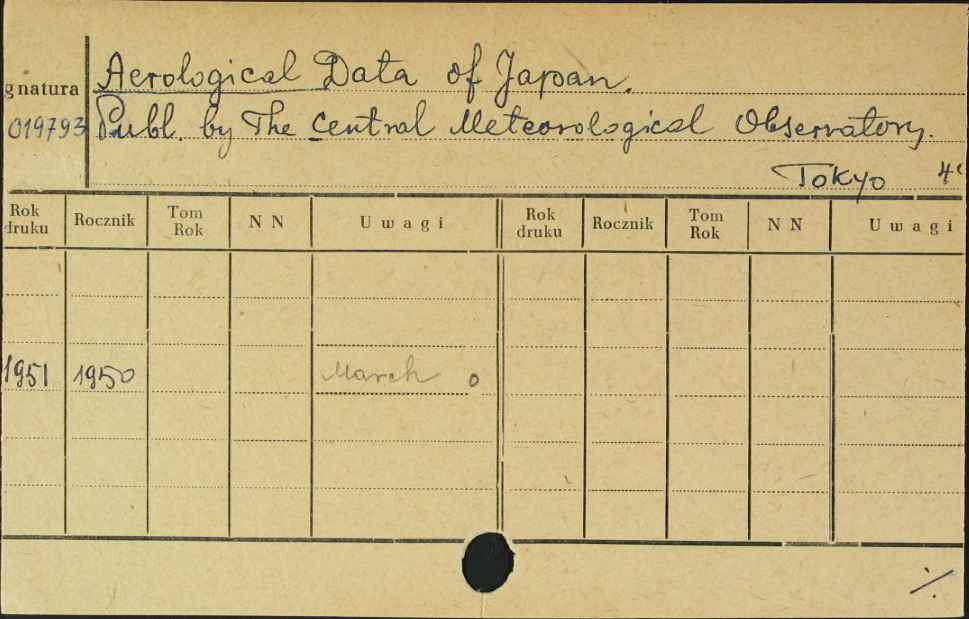 Aerological Data of Japan.
gnatura
019793 Publ. by The Central Meteorological Observatory.
Tokyo 4°
Rok druku Rocznik Tom Rok N N Uwagi Rok druku Rocznik Tom Rok N N Uwagi
1951 1950 March o
./.